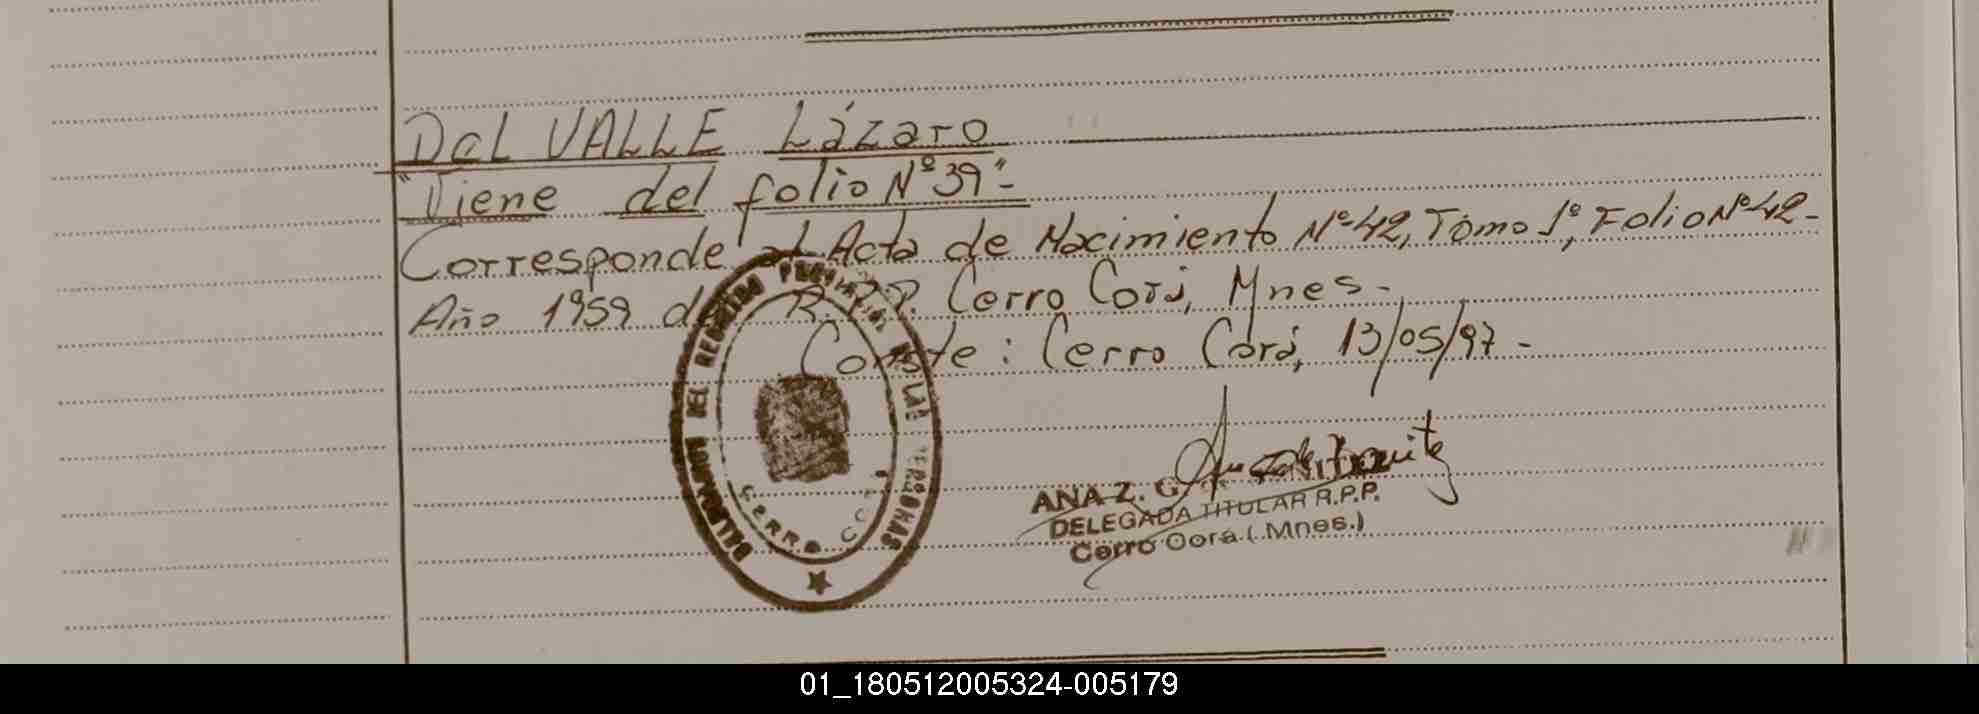 Del VALLE Lázaro
"Viene del folio Nº 39"-
Corresponde al Acta de Nacimiento Nº 42, Tomo 1º, Folio Nº 42-
Año 1959 del R.P.P. Cerro Corá, Mnes.-
Conste: Cerro Corá, 13/05/97-
DEL REGISTRO PROVINCIAL DE LAS PERSONAS
CERRO CORA
ANA Z. G.
DELEGADA TITULAR R.P.P.
Cerro Corá (Mnes.)
01_180512005324-005179